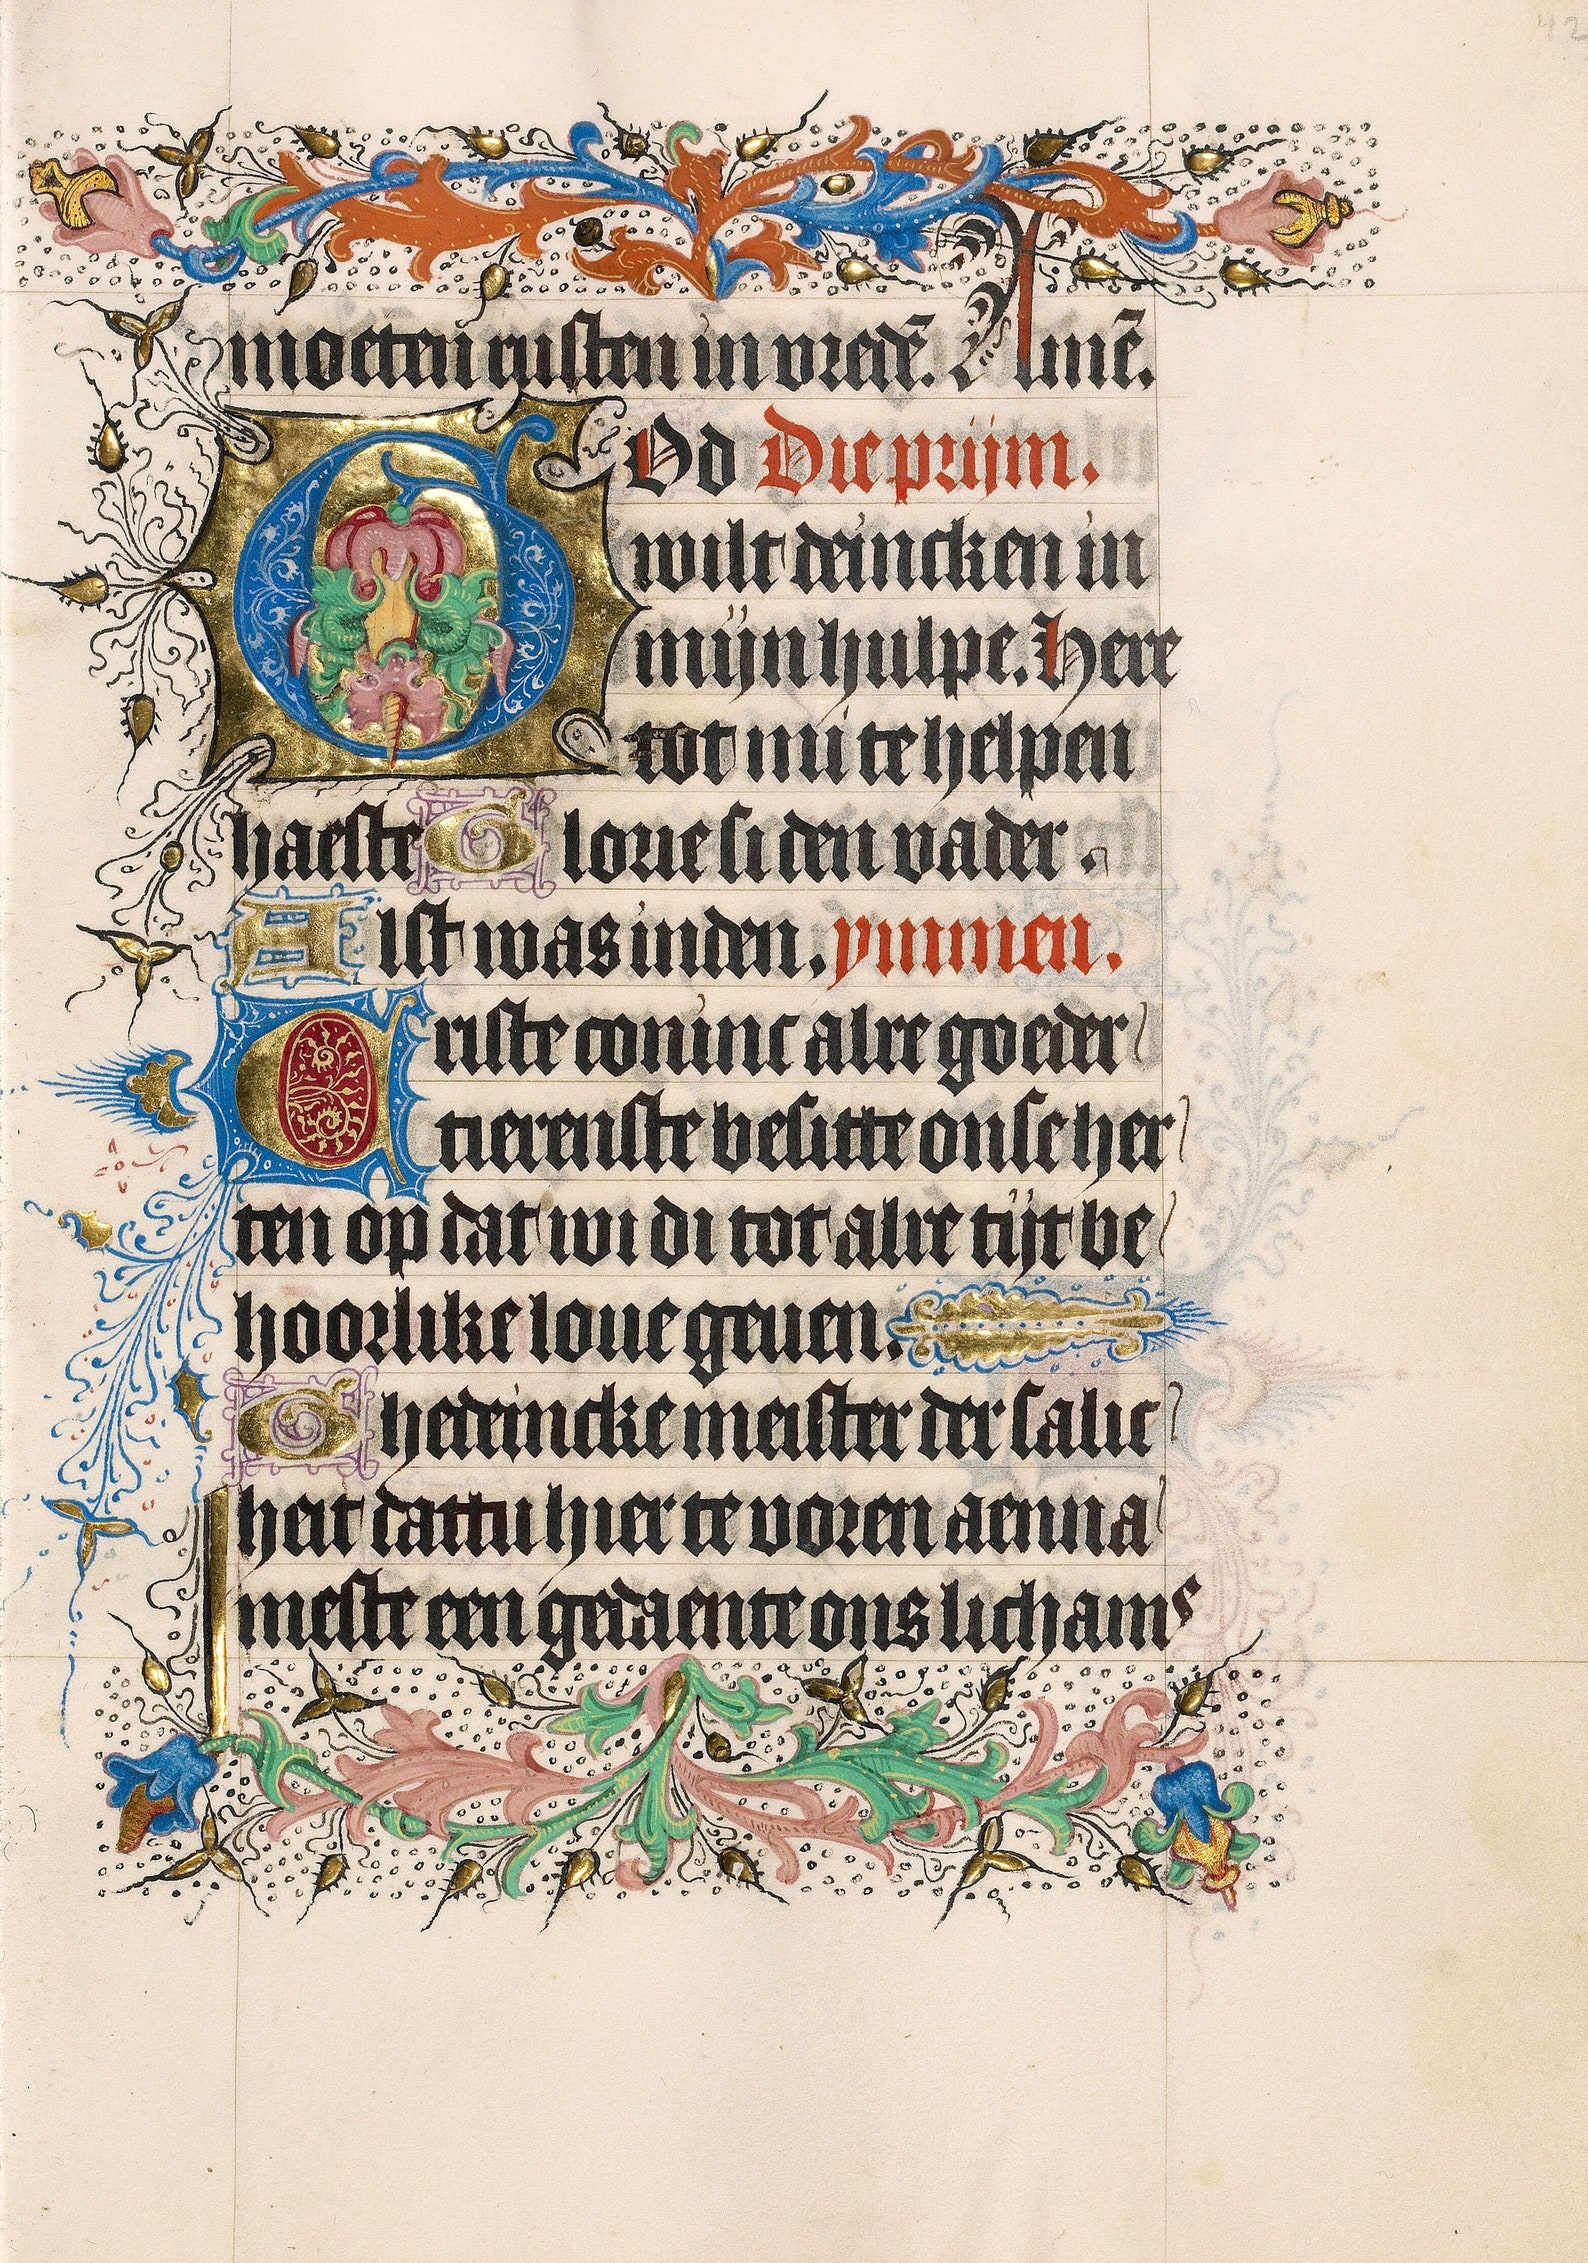 42
moeten rusten in vredē. Amē.
GOd Die priim.
wilt deincken in
mijn hulpe. Here
tot mi te helpen
haeste Glorie si den vader.
Alst was in den. ymmen.
Criste coninc alre goeder
tierenste besitte onse her
ten op dat wi di tot alre tijt be
hoorlike loue geuen.
Ghedeincke meister der salic
heit dattu hier te voren aenna
meste een gedaente ons lichams